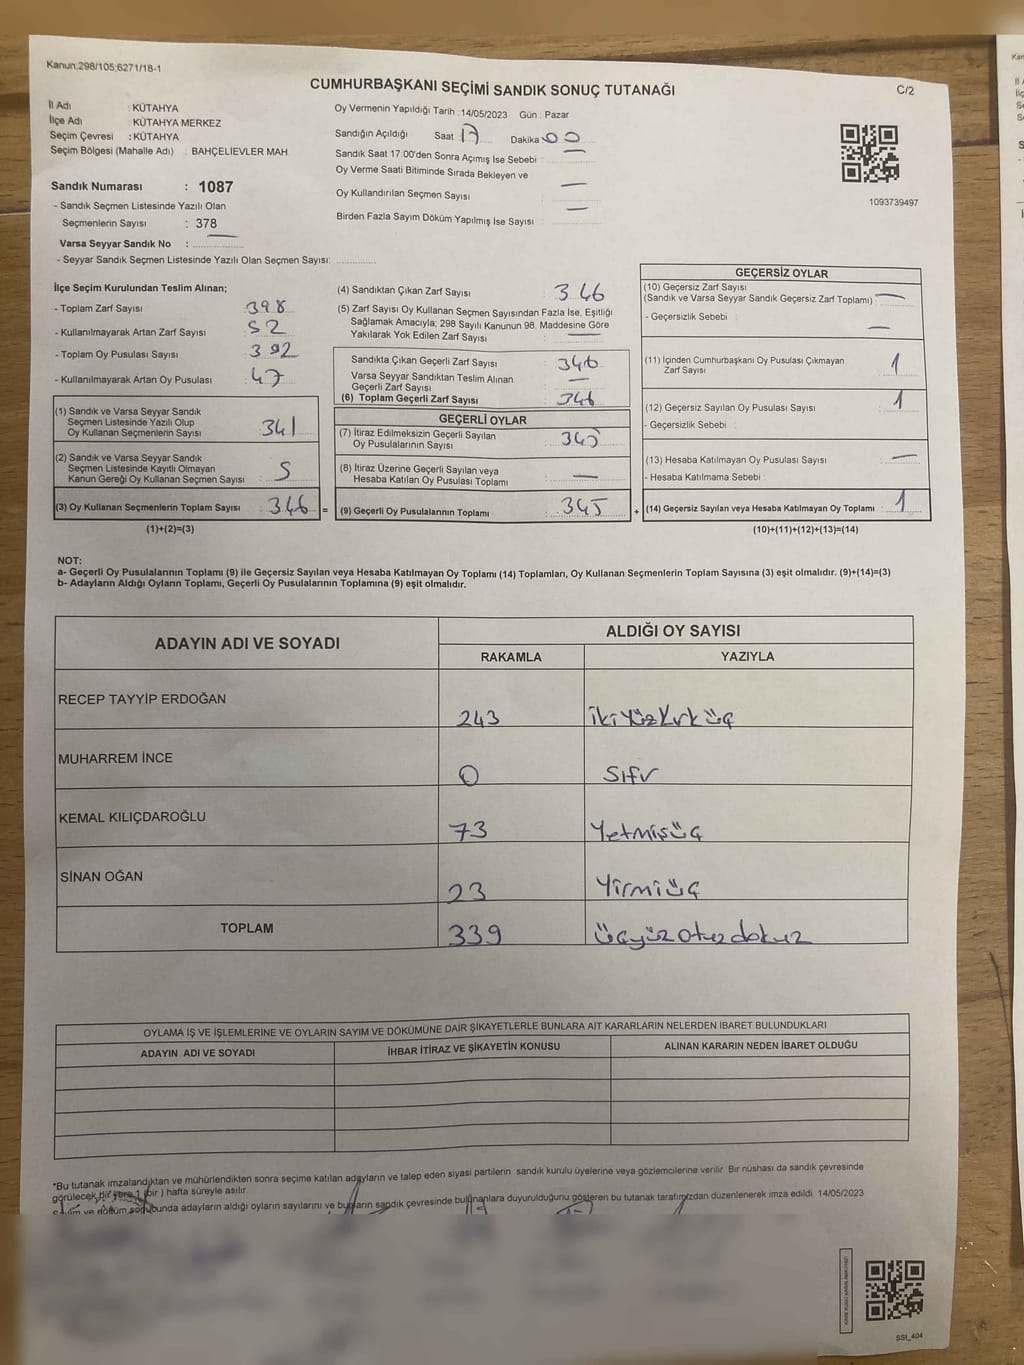 Kanun;298/105;6271/18-1
CUMHURBAŞKANI SEÇİMİ SANDIK SONUÇ TUTANAĞI
C/2
İl Adı : KÜTAHYA
İlçe Adı : KÜTAHYA MERKEZ
Seçim Çevresi : KÜTAHYA
Seçim Bölgesi (Mahalle Adı) : BAHÇELİEVLER MAH.
Sandık Numarası : 1087
- Sandık Seçmen Listesinde Yazılı Olan
Seçmenlerin Sayısı : 378
Varsa Seyyar Sandık No :
- Seyyar Sandık Seçmen Listesinde Yazılı Olan Seçmen Sayısı:
Oy Vermenin Yapıldığı Tarih :14/05/2023 Gün : Pazar
Sandığın Açıldığı Saat : 17 Dakika 00
Sandık Saat 17:00'den Sonra Açımış İse Sebebi : —
Oy Verme Saati Bitiminde Sırada Bekleyen ve
Oy Kullandırılan Seçmen Sayısı : —
Birden Fazla Sayım Döküm Yapılmış İse Sayısı : —
1093739497
İlçe Seçim Kurulundan Teslim Alınan;
- Toplam Zarf Sayısı : 398
- Kullanılmayarak Artan Zarf Sayısı : 52
- Toplam Oy Pusulası Sayısı : 392
- Kullanılmayarak Artan Oy Pusulası : 47
(1) Sandık ve Varsa Seyyar Sandık
Seçmen Listesinde Yazılı Olup
Oy Kullanan Seçmenlerin Sayısı : 341
(2) Sandık ve Varsa Seyyar Sandık
Seçmen Listesinde Kayıtlı Olmayan
Kanun Gereği Oy Kullanan Seçmen Sayısı : 5
(3) Oy Kullanan Seçmenlerin Toplam Sayısı : 346 =
(1)+(2)=(3)
(4) Sandıktan Çıkan Zarf Sayısı 346
(5) Zarf Sayısı Oy Kullanan Seçmen Sayısından Fazla İse, Eşitliği
Sağlamak Amacıyla; 298 Sayılı Kanunun 98. Maddesine Göre
Yakılarak Yok Edilen Zarf Sayısı : —
Sandıkta Çıkan Geçerli Zarf Sayısı : 346
Varsa Seyyar Sandıktan Teslim Alınan
Geçerli Zarf Sayısı : —
(6) Toplam Geçerli Zarf Sayısı : 346
GEÇERLİ OYLAR
(7) İtiraz Edilmeksizin Geçerli Sayılan
Oy Pusulalarının Sayısı : 345
(8) İtiraz Üzerine Geçerli Sayılan veya
Hesaba Katılan Oy Pusulası Toplamı : —
(9) Geçerli Oy Pusulalarının Toplamı : 345 +
GEÇERSİZ OYLAR
(10) Geçersiz Zarf Sayısı
(Sandık ve Varsa Seyyar Sandık Geçersiz Zarf Toplamı) : —
- Geçersizlik Sebebi : —
(11) İçinden Cumhurbaşkanı Oy Pusulası Çıkmayan
Zarf Sayısı 1
(12) Geçersiz Sayılan Oy Pusulası Sayısı : 1
- Geçersizlik Sebebi :
(13) Hesaba Katılmayan Oy Pusulası Sayısı : —
- Hesaba Katılmama Sebebi :
(14) Geçersiz Sayılan veya Hesaba Katılmayan Oy Toplamı : 1
(10)+(11)+(12)+(13)=(14)
NOT:
a- Geçerli Oy Pusulalarının Toplamı (9) ile Geçersiz Sayılan veya Hesaba Katılmayan Oy Toplamı (14) Toplamları, Oy Kullanan Seçmenlerin Toplam Sayısına (3) eşit olmalıdır. (9)+(14)=(3)
b- Adayların Aldığı Oyların Toplamı, Geçerli Oy Pusulalarının Toplamına (9) eşit olmalıdır.
ADAYIN ADI VE SOYADI
ALDIĞI OY SAYISI
RAKAMLA YAZIYLA
RECEP TAYYİP ERDOĞAN 243 ikiyüzkırküç
MUHARREM İNCE 0 Sıfır
KEMAL KILIÇDAROĞLU 73 Yetmişüç
SİNAN OĞAN 23 Yirmiüç
TOPLAM 339 üçyüzotuzdokuz
OYLAMA İŞ VE İŞLEMLERİNE VE OYLARIN SAYIM VE DÖKÜMÜNE DAİR ŞİKAYETLERLE BUNLARA AİT KARARLARIN NELERDEN İBARET BULUNDUKLARI
ADAYIN ADI VE SOYADI
İHBAR İTİRAZ VE ŞİKAYETİN KONUSU
ALINAN KARARIN NEDEN İBARET OLDUĞU
*Bu tutanak imzalandıktan ve mühürlendikten sonra seçime katılan adayların ve talep eden siyasi partilerin sandık kurulu üyelerine veya gözlemcilerine verilir. Bir nüshası da sandık çevresinde
görülecek bir yere 1 (bir ) hafta süreyle asılır.
Sayım ve döküm sonucunda adayların aldığı oyların sayılarını ve bunların sandık çevresinde bulunanlara duyurulduğunu gösteren bu tutanak tarafımızdan düzenlenerek imza edildi. 14/05/2023
SSI_404